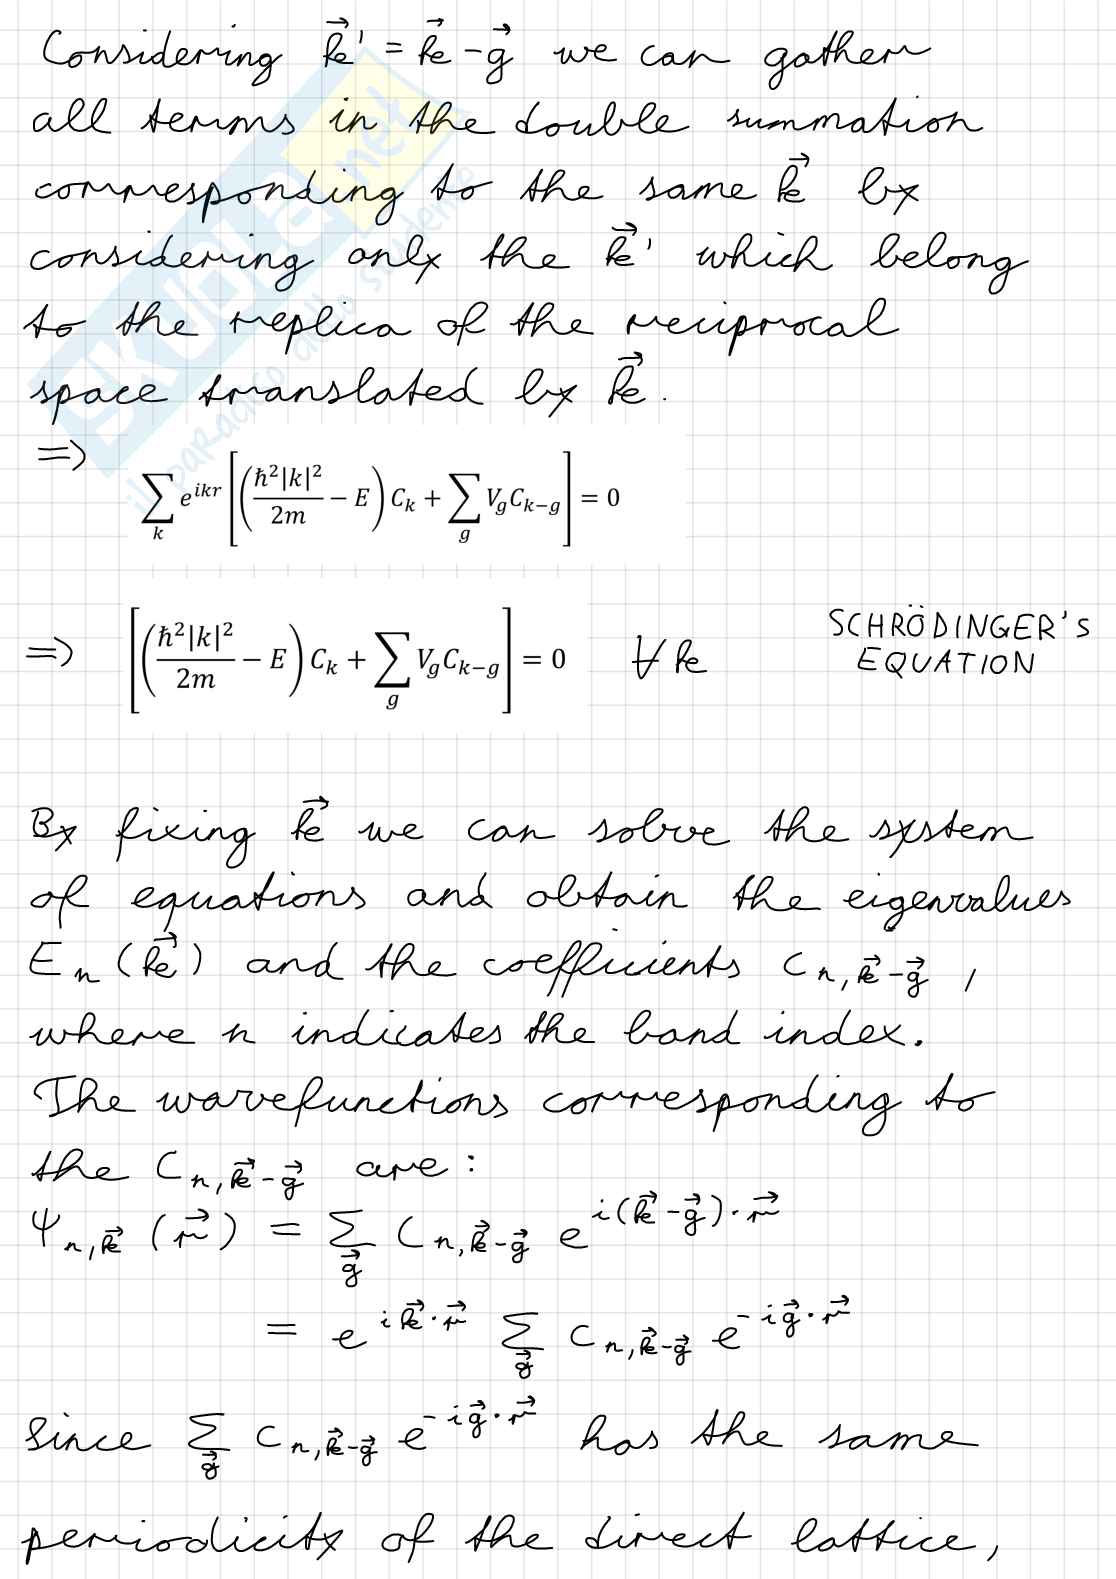 Considering k⃗' = k⃗ - g⃗ we can gather
all terms in the double summation
corresponding to the same k⃗ by
considering only the k⃗' which belong
to the replica of the reciprocal
space translated by k⃗.
⇒
∑_k e^{ikr} [ ( ħ²|k|²/2m - E ) C_k + ∑_g V_g C_{k-g} ] = 0
⇒ [ ( ħ²|k|²/2m - E ) C_k + ∑_g V_g C_{k-g} ] = 0 ∀ k
SCHRÖDINGER'S
EQUATION
By fixing k⃗ we can solve the system
of equations and obtain the eigenvalues
E_n (k⃗) and the coefficients C_{n, k⃗-g⃗} ,
where n indicates the band index.
The wavefunctions corresponding to
the C_{n, k⃗-g⃗} are:
Ψ_{n, k⃗} (r⃗) = ∑_{g⃗} C_{n, k⃗-g⃗} e^{i(k⃗-g⃗)·r⃗}
= e^{i k⃗·r⃗} ∑_{g⃗} C_{n, k⃗-g⃗} e^{-i g⃗·r⃗}
Since ∑_{g⃗} C_{n, k⃗-g⃗} e^{-i g⃗·r⃗} has the same
periodicity of the direct lattice,
SKUOLA.net
il paradiso dello studente